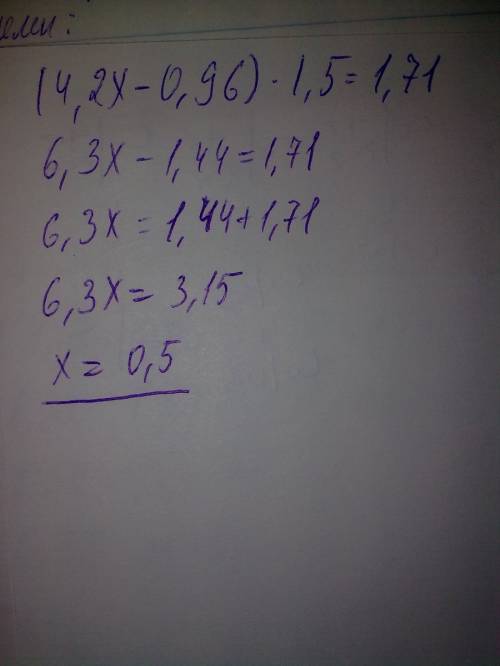 (4,2x-0,96)·1,5=1,71
6,3x-1,44=1,71
6,3x=1,44+1,71
6,3x=3,15
x=0,5